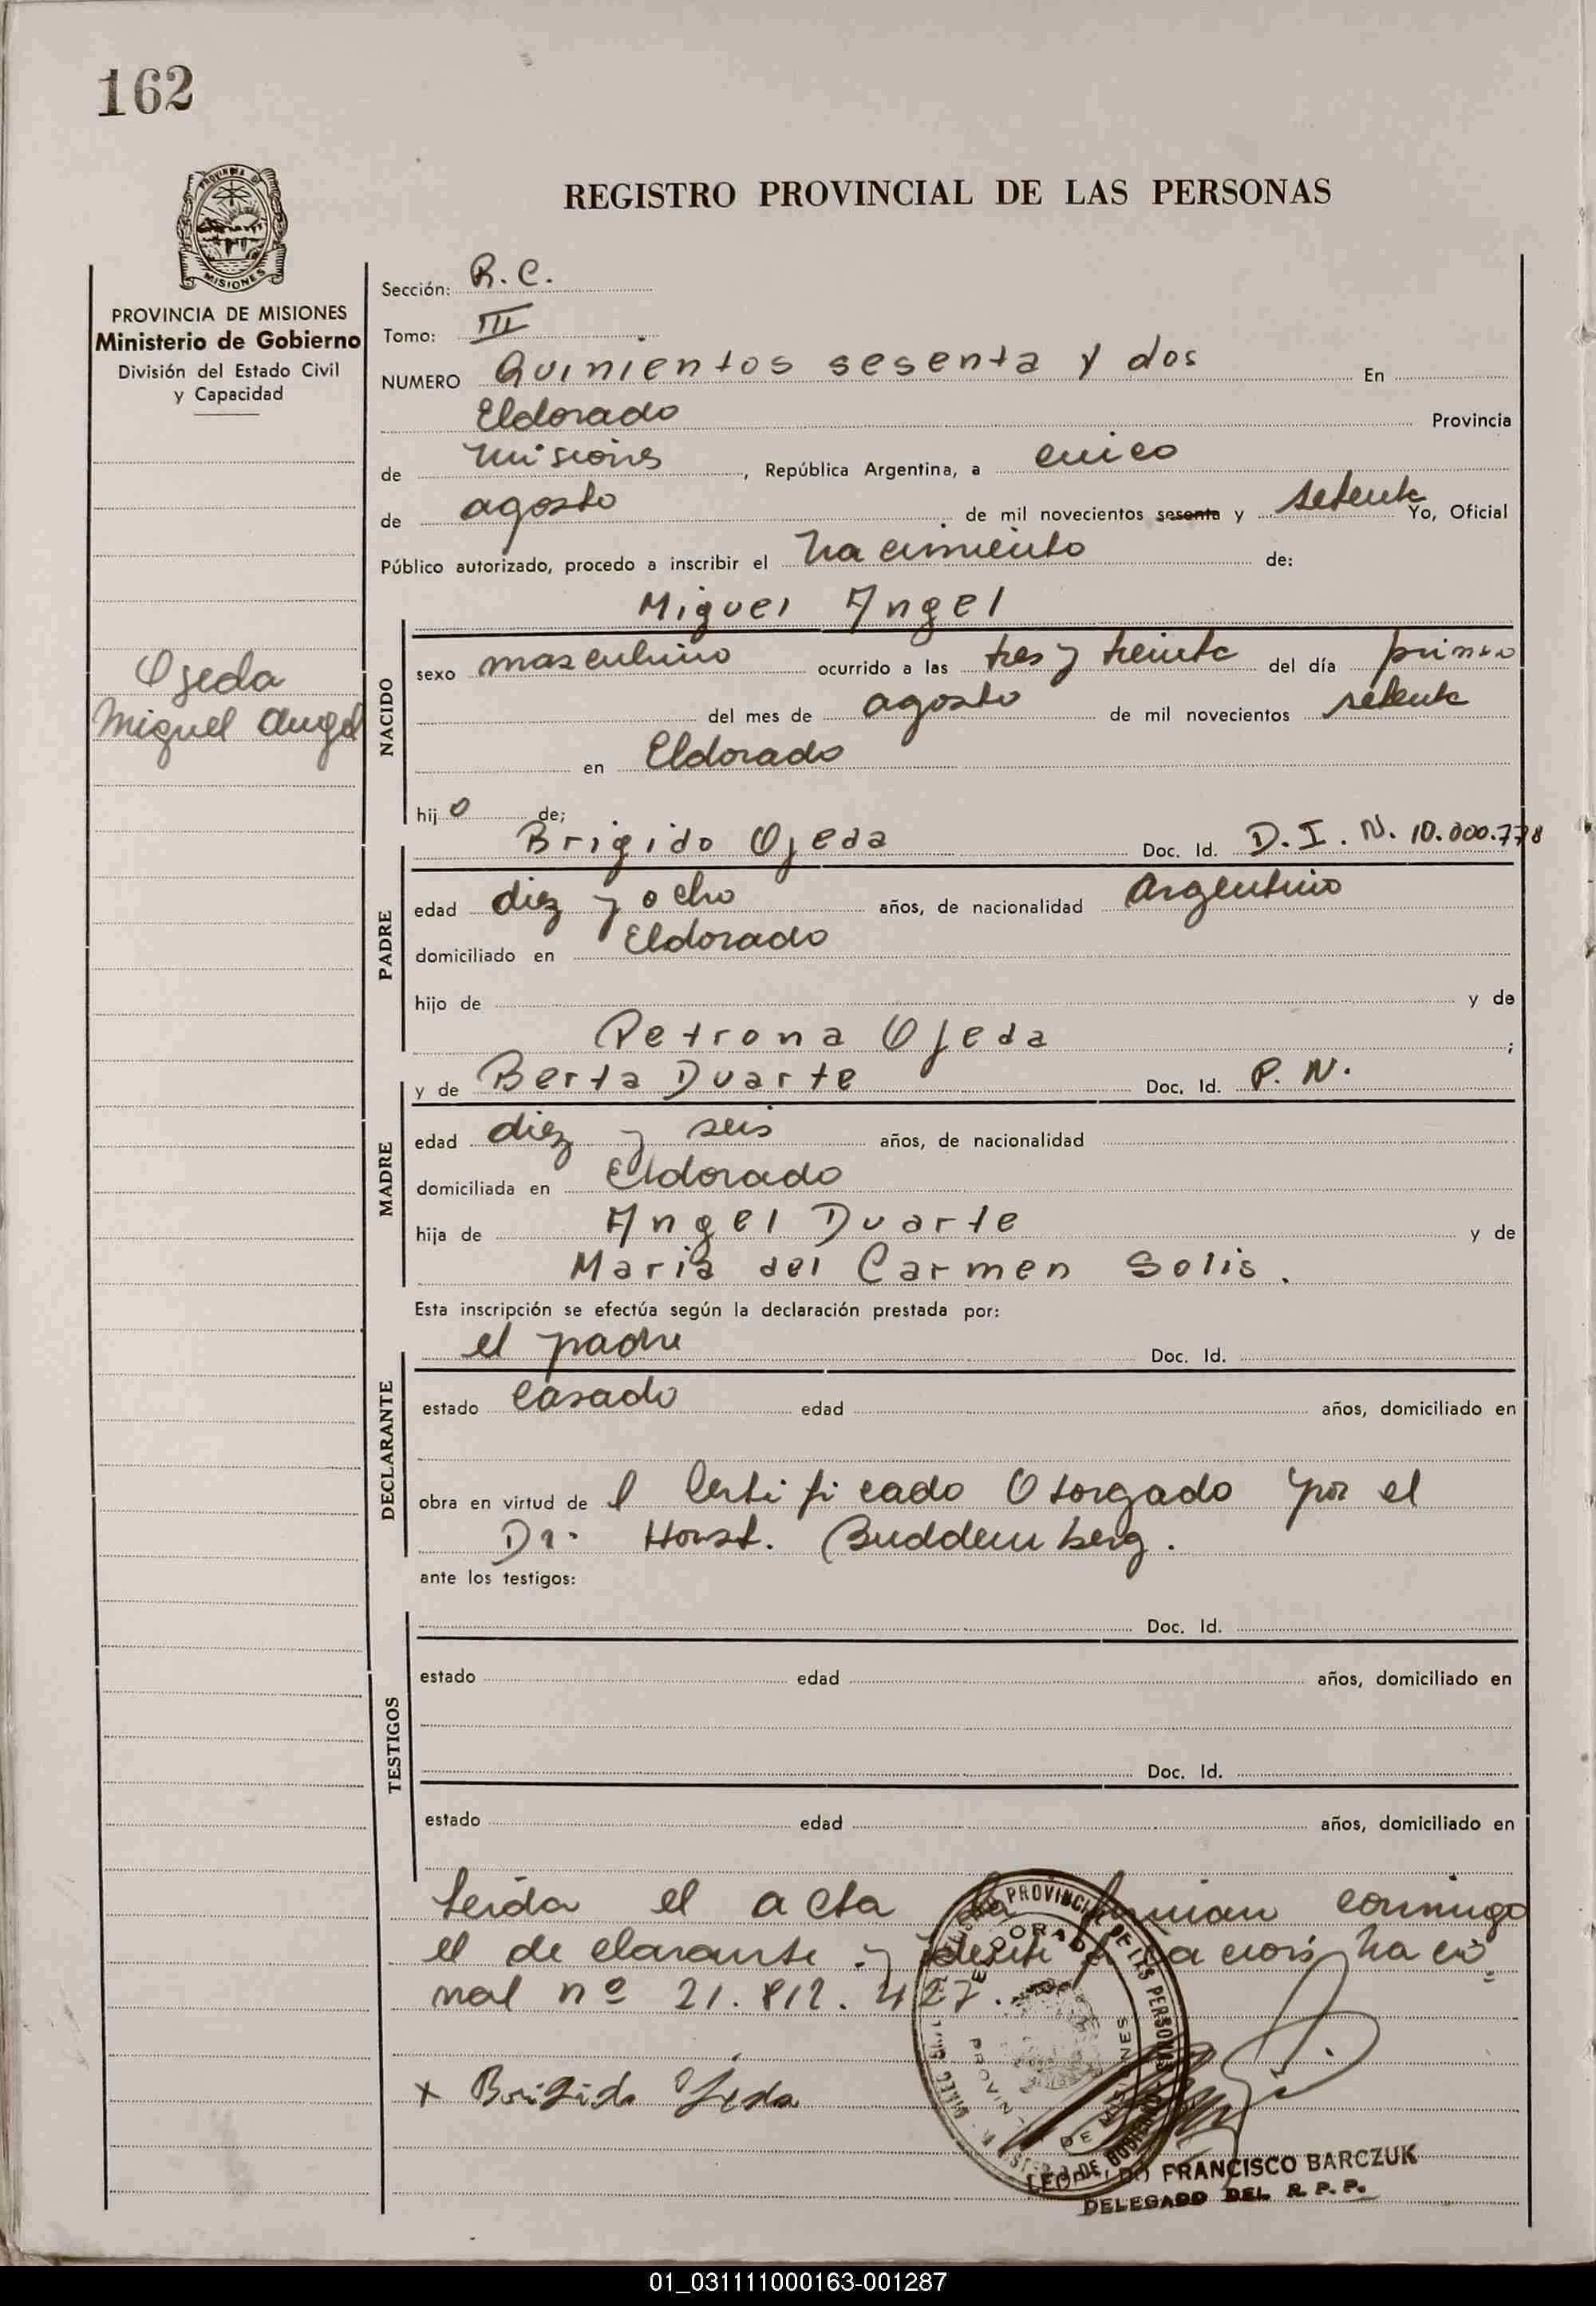 162
PROVINCIA DE
MISIONES
REGISTRO PROVINCIAL DE LAS PERSONAS
PROVINCIA DE MISIONES
Ministerio de Gobierno
División del Estado Civil
y Capacidad
Ojeda
Miguel Angel
Sección: R. C.
Tomo: III
NUMERO Quinientos sesenta y dos En
Eldorado Provincia
de Misiones, República Argentina, a cinco
de agosto de mil novecientos sesenta y setenta Yo, Oficial
Público autorizado, procedo a inscribir el nacimiento de:
Miguel Angel
NACIDO
sexo masculino ocurrido a las tres y treinta del día primero
del mes de agosto de mil novecientos setenta
en Eldorado
hijo de;
Brigido Ojeda Doc. Id. D. I. N. 10.000.778
PADRE
edad diez y ocho años, de nacionalidad Argentino
domiciliado en Eldorado
hijo de y de
Petrona Ojeda ;
y de Berta Duarte Doc. Id. P. N.
MADRE
edad diez y seis años, de nacionalidad
domiciliada en Eldorado
hija de Angel Duarte y de
Maria del Carmen Solis.
Esta inscripción se efectúa según la declaración prestada por:
el padre Doc. Id.
DECLARANTE
estado Casado edad años, domiciliado en
obra en virtud de l Certificado Otorgado por el
Dr. Horst. Buddemberg.
ante los testigos:
TESTIGOS
Doc. Id.
estado edad años, domiciliado en
Doc. Id.
estado edad años, domiciliado en
Leida el acta la firman conmigo
el declarante y identificación nacio=
nal nº 21.812.427.
x Brigido Ojeda
PROVINCIAL DE LAS PERSONAS
ELDORADO
PROVIN DE MISIONES
DE GOBIERNO
FRANCISCO BARCZUK
DELEGADO DEL R. P. P.
01_031111000163-001287